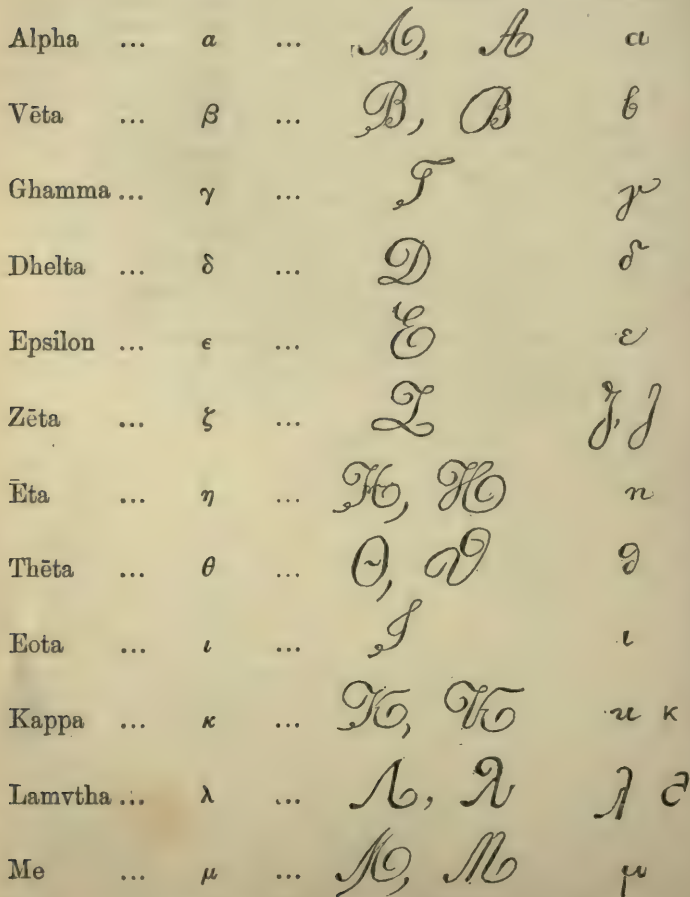 Alpha ... α ... Α, Α α
Vēta ... β ... Β, Β β
Ghamma ... γ ... Γ γ
Dhelta ... δ ... Δ δ
Epsilon ... ϵ ... Ε ε
Zēta ... ζ ... Ζ ζ, ζ
Ēta ... η ... Η, Η η
Thēta ... θ ... Θ, ϑ ϑ
Eota ... ι ... Ι ι
Kappa ... κ ... Κ, Κ κ κ
Lamvtha ... λ ... Λ, λ λ
Me ... μ ... Μ, Μ μ